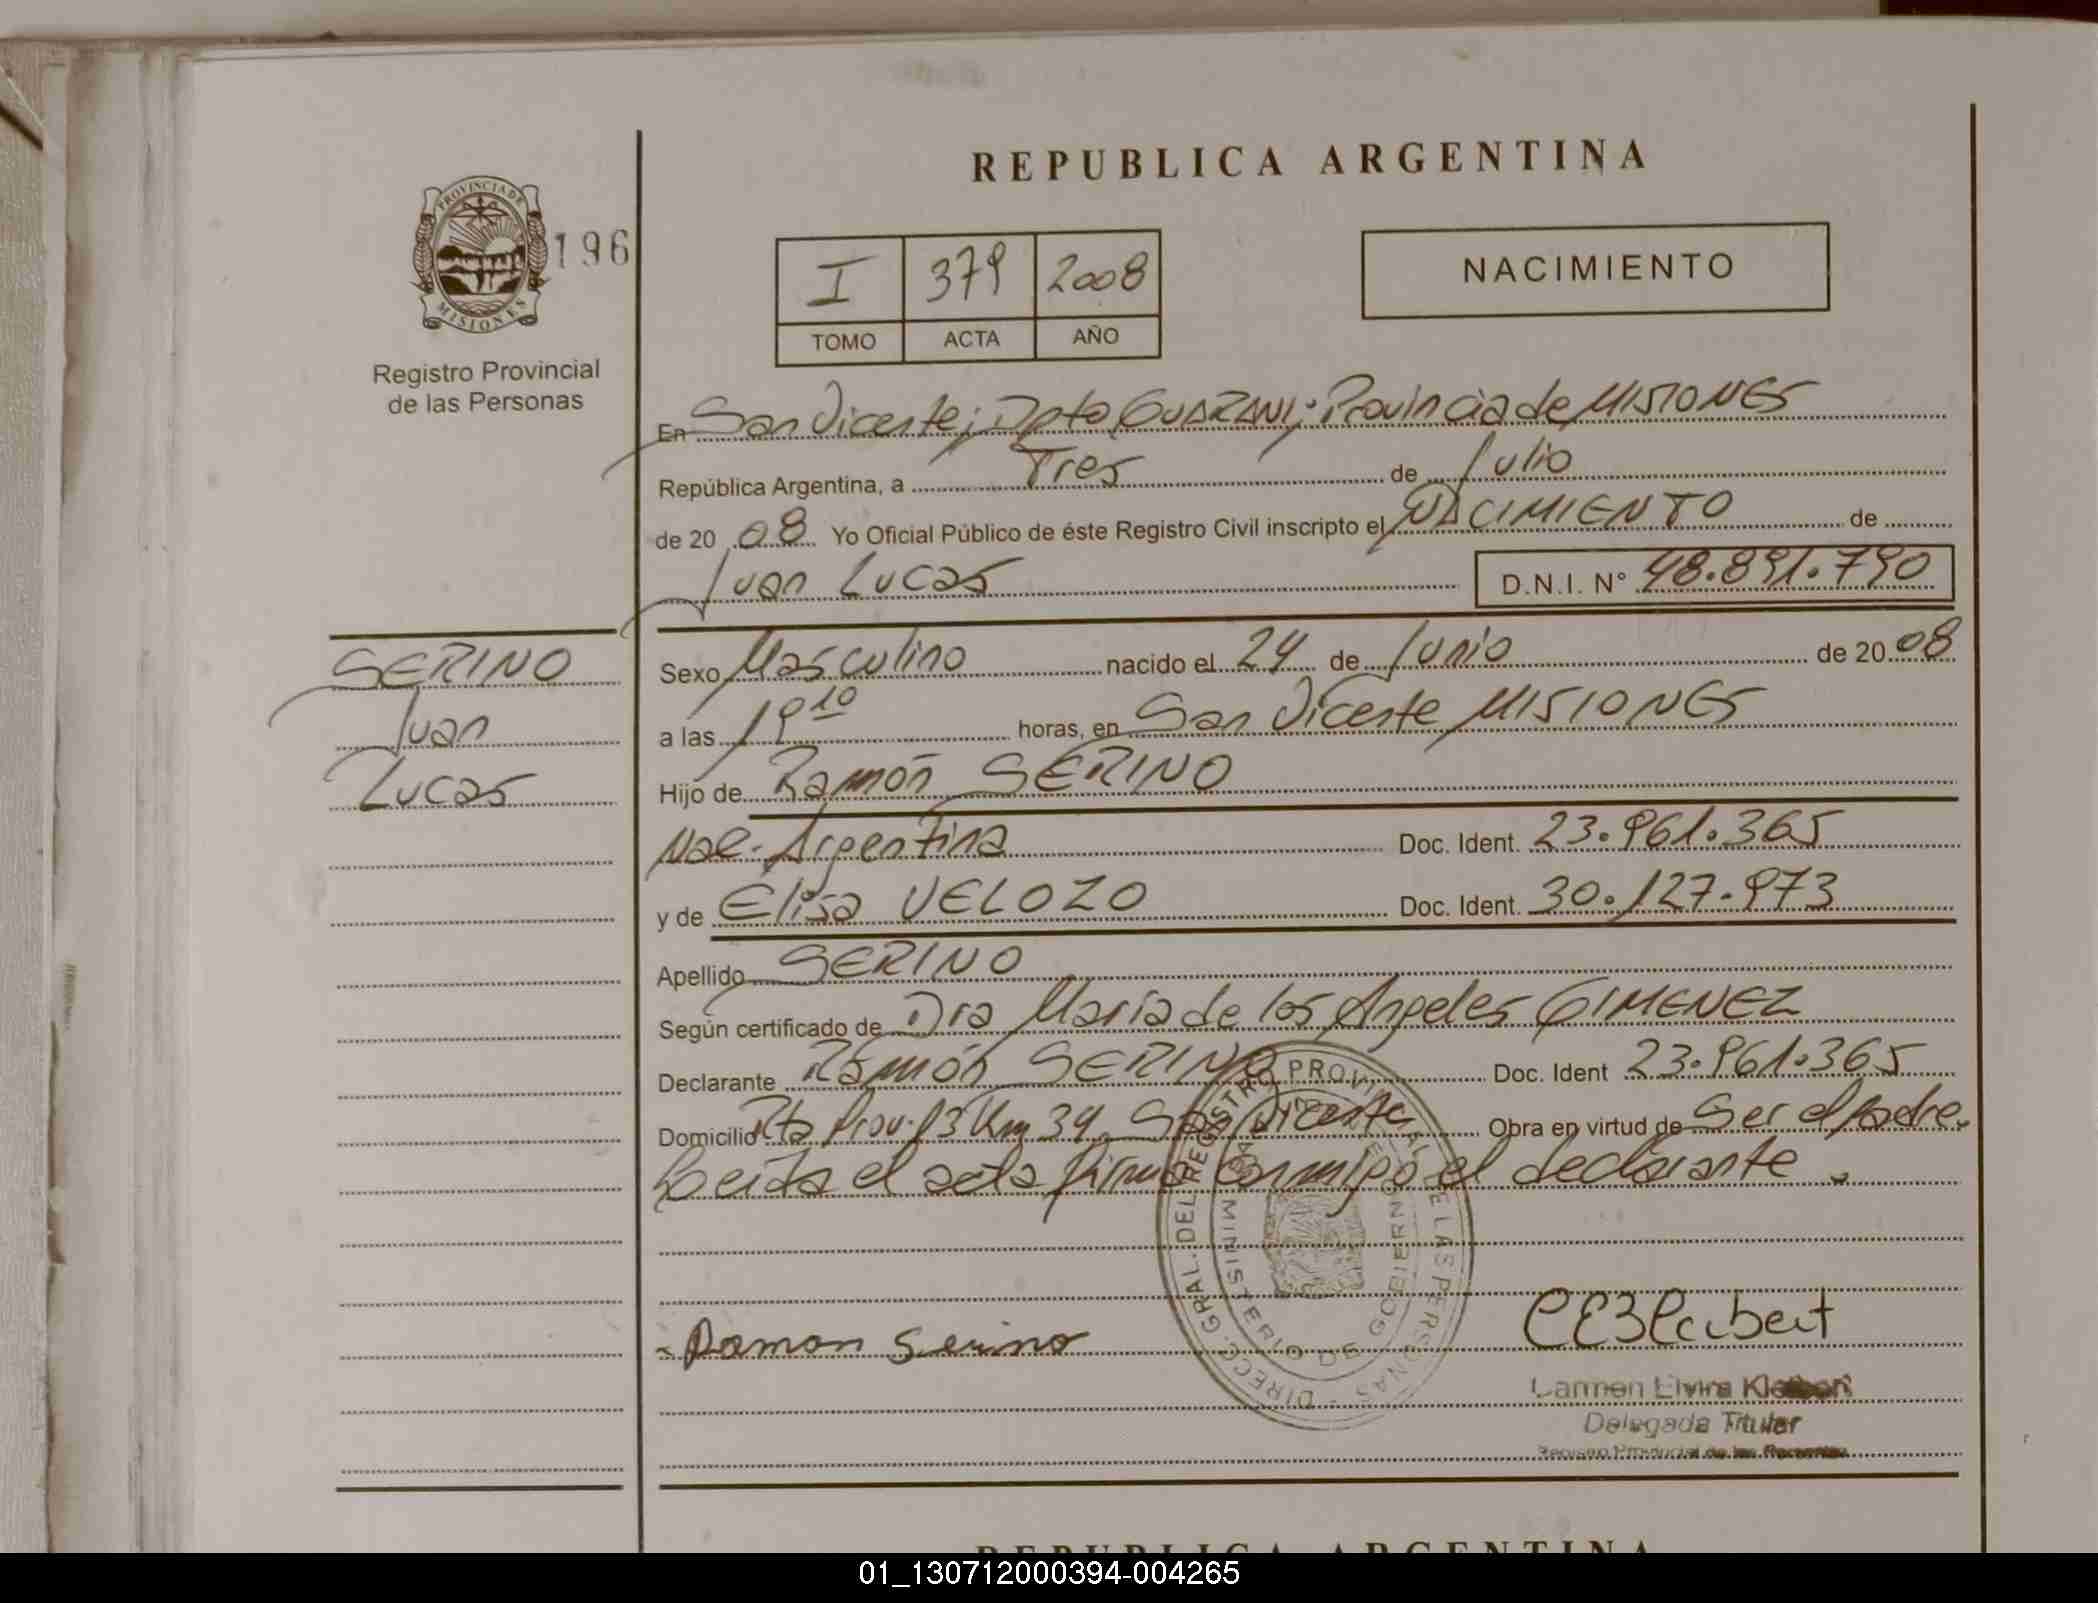 REPUBLICA ARGENTINA
PROVINCIA DE
MISIONES
196
I 379 2008
TOMO ACTA AÑO
NACIMIENTO
Registro Provincial
de las Personas
En San Vicente; Dpto GUARANI; Provincia de MISIONES
República Argentina, a Tres de Julio
de 2008 Yo Oficial Público de éste Registro Civil inscripto el NACIMIENTO de
Juan Lucas D.N.I. N° 48.891.790
SERINO
Juan
Lucas
Sexo Masculino nacido el 24 de Junio de 2008
a las 19 10 horas, en San Vicente MISIONES
Hijo de Ramón SERINO
Nac. Argentina Doc. Ident. 23.961.365
y de Elisa VELOZO Doc. Ident. 30.127.973
Apellido SERINO
Según certificado de Dra María de los Angeles GIMENEZ
Declarante Ramón SERINO Doc. Ident 23.961.365
Domicilio Rta Prov. 13 Km 34 San Vicente Obra en virtud de Ser el padre.
Leida el acta firma conmigo el declarante.
DIRECC. GRAL. DEL REGISTRO PROVINCIAL DE LAS PERSONAS
MINISTERIO DE GOBIERNO
Ramon Serino
Carmen Elvira
Delegada Titular
Registro Provincial de las Personas
REPUBLICA ARGENTINA
01_130712000394-004265